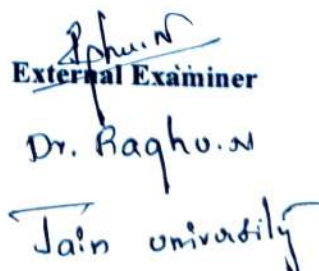 External Examiner
Dr. Raghu.N
Jain university